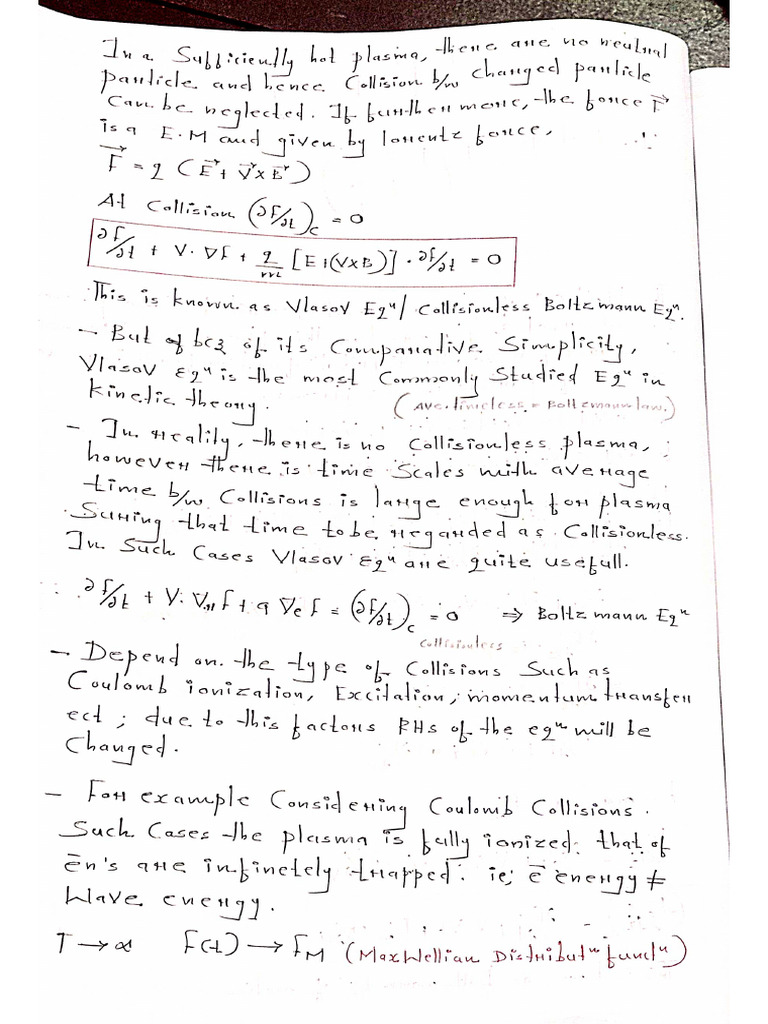 In a Sufficiently hot plasma, there are no neutral
particle and hence Collision b/w charged particle
Can be neglected. If furthermore, the force F⃗
is a E.M and given by lorentz force,
F⃗ = q (E⃗ + V⃗ x B⃗)
At Collision (∂f/∂t)c = 0
∂f/∂t + V. ∇f + q/m [E+(VxB)] . ∂f/∂t = 0
This is known as Vlasov Eqⁿ/ Collisionless Boltzmann Eqⁿ.
- But of bcz of its Comparative Simplicity,
Vlasov Eqⁿ is the most Commonly Studied Eqⁿ in
kinetic theory.
(Ave. timeless = Boltzmann law.)
- In reality, there is no Collisionless plasma,
however there is time Scales with average
time b/w Collisions is large enough for plasma
Suring that time to be regarded as Collisionless.
In Such Cases Vlasov Eqⁿ are quite usefull.
∴ ∂f/∂t + V. ∇r f + a ∇c f = (∂f/∂t)c = 0 ⇒ Boltzmann Eqⁿ
Collisionless
- Depend on the type of Collisions Such as
Coulomb ionization, Excitation, momentum transfer
ect ; due to this factors RHs of the eqⁿ will be
Changed.
- For example Considering Coulomb Collisions.
Such Cases the plasma is fully ionized. that of
ēn's are infinetely trapped. ie; ē energy ≠
Wave energy.
T → ∝ F(t) → FM (Maxwellian Distributⁿ functⁿ)